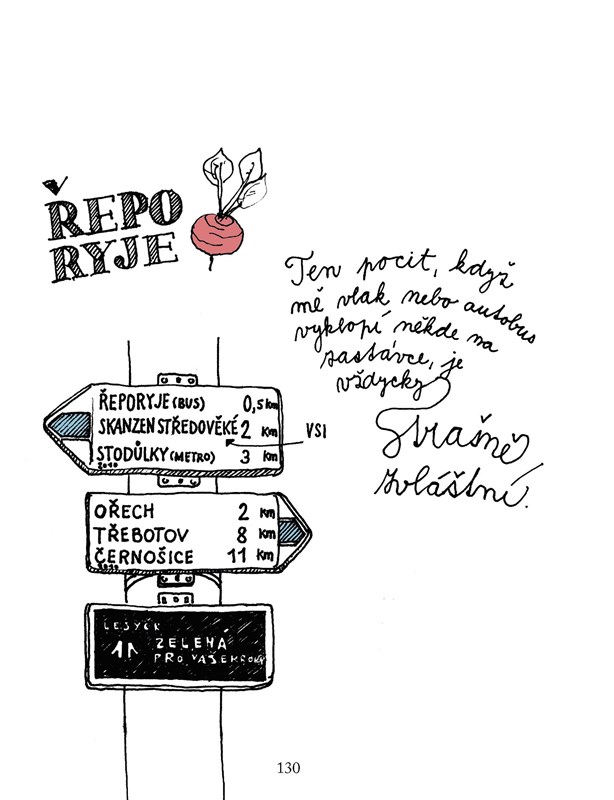 ŘEPO
RYJE
Ten pocit, když
mě vlak nebo autobus
vyklopí někde na
zastávce, je
vždycky
Strašně
zvláštní.
ŘEPORYJE (BUS) 0,5 km
SKANZEN STŘEDOVĚKÉ 2 km
VSI
STODŮLKY (METRO) 3 km
2010
OŘECH 2 km
TŘEBOTOV 8 km
ČERNOŠICE 11 km
2010
ZELENÁ
PRO VAŠE KROKY
130